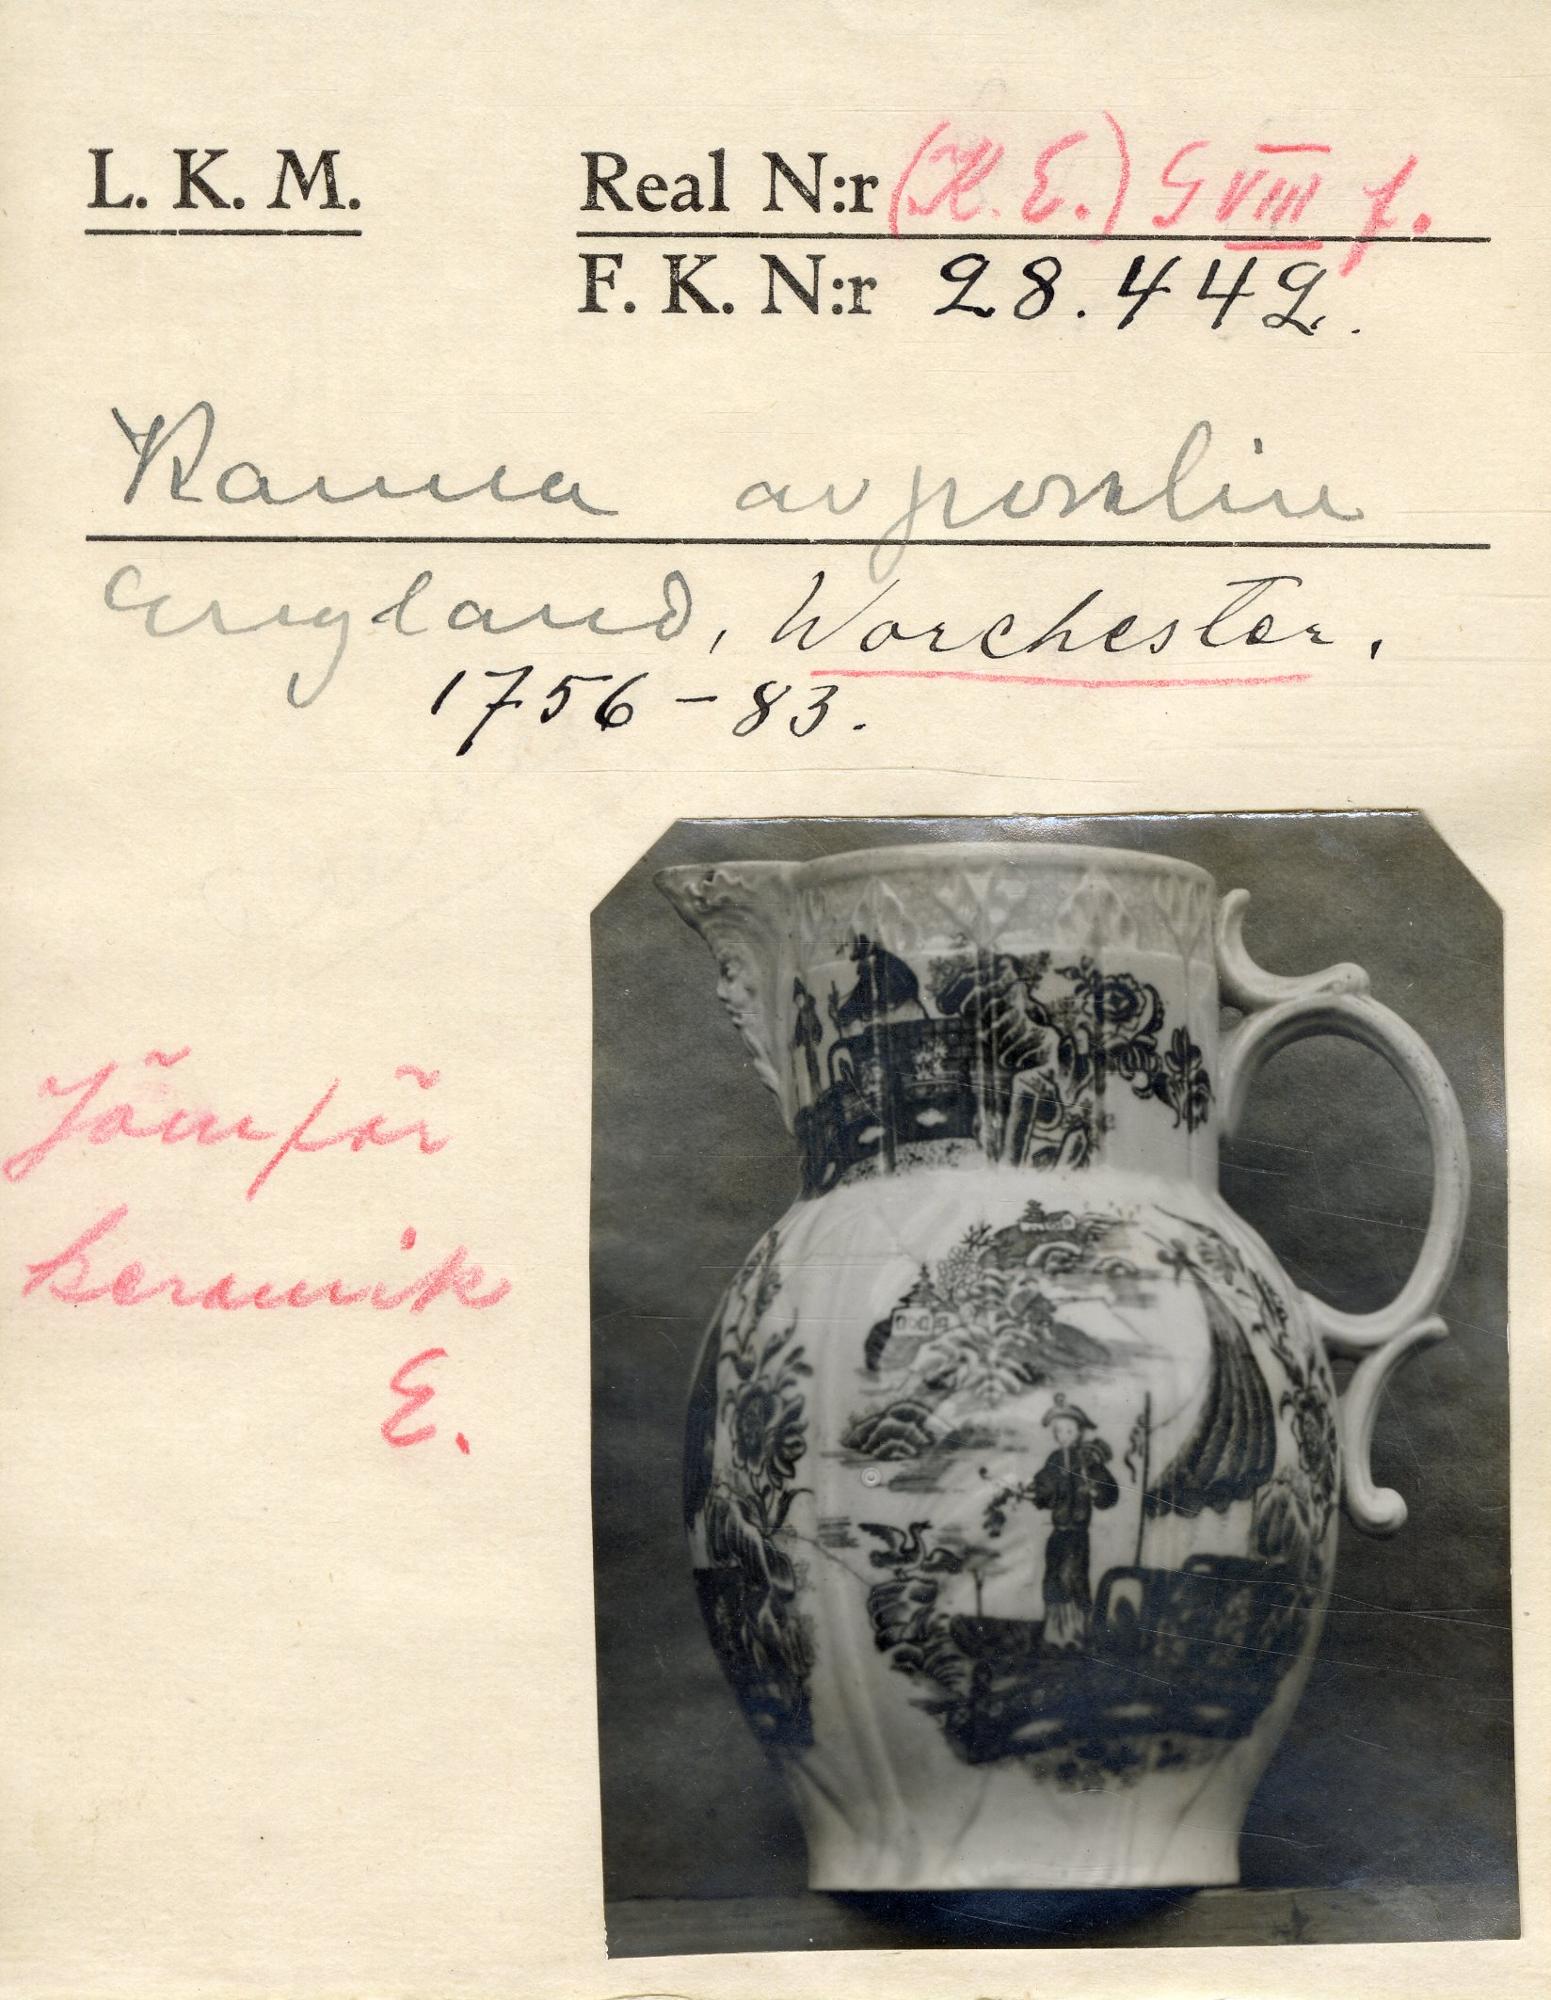 L. K. M.
Real N:r (K. E.) G VIII f.
F. K. N:r 28.442.
Kanna av porslin
England, Worchester.
1756-83.
Jämför
keramik
E.